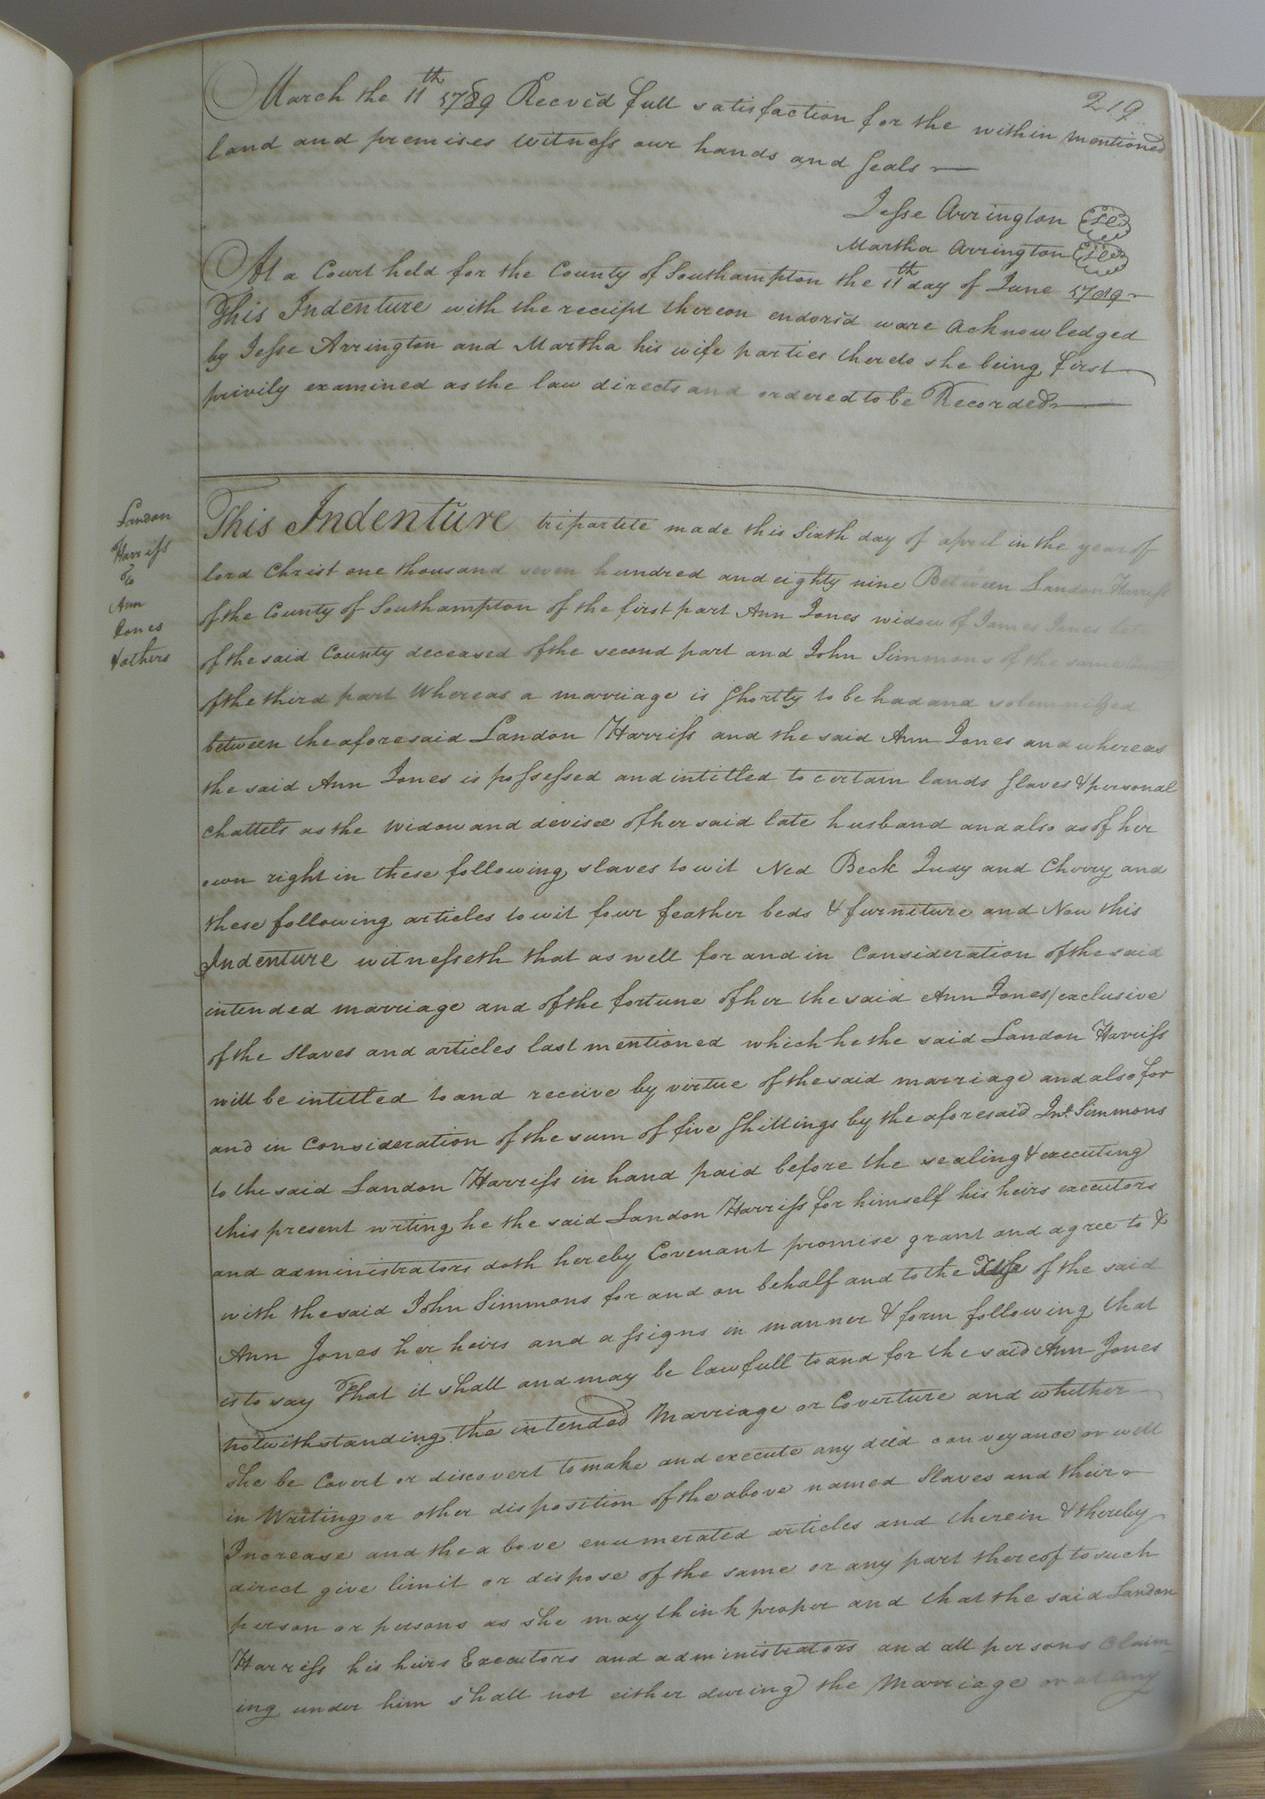 219
March the 11th 1789 Recevd full satisfaction for the within mentioned
land and premises witness our hands and seals
Jesse Arrington
Martha Arrington
At a Court held for the County of Southampton the 11th day of June 1789
This Indenture with the receipt thereon endorsd ware acknowledged
by Jesse Arrington and Martha his wife parties thereto she being first
privily examined as the law directs and ordered to be Recorded
Landon
Harriss
To
Ann
Jones
& others
This Indenture tripartite made this Sixth day of april in the year of
lord Christ one thousand seven hundred and eighty nine Between Landon Harriss
of the County of Southampton of the first part Ann Jones widow of James Jones late
of the said County deceased of the second part and John Simmons of the same
of the third part Whereas a marriage is shortly to be had and solemnized
between the aforesaid Landon Harriss and the said Ann Jones and whereas
the said Ann Jones is possessed and intitled to certain lands slaves & personal
chattels as the widow and devisee of her said late husband and also as of her
own right in these following slaves to wit Ned Beck Judy and Cherry and
these following articles to wit four feather beds & furniture and Now this
Indenture witnesseth that as well for and in Consideration of the said
intended marriage and of the fortune of her the said Ann Jones/exclusive
of the slaves and articles last mentioned which he the said Landon Harriss
will be intitled to and receive by virtue of the said marriage and also for
and in Consideration of the sum of five shillings by the aforesaid Jno. Simmons
to the said Landon Harriss in hand paid before the sealing & executing
this present writing he the said Landon Harriss for himself his heirs executors
and administrators doth hereby Covenant promise grant and agree to &
with the said John Simmons for and on behalf and to the Use of the said
Ann Jones her heirs and assigns in manner & form following that
is to say That it shall and may be lawfull to and for the said Ann Jones
notwithstanding the intended Marriage or Coverture and whether
She be Covert or discovert to make and execute any deed conveyance or will
in Writing or other disposition of the above named Slaves and their
Increase and the above enumerated articles and therein & thereby
direct give limit or dispose of the same or any part thereof to such
person or persons as she may think proper and that the said Landon
Harriss his heirs Executors and administrators and all persons claim
ing under him shall not either during the Marriage or at any